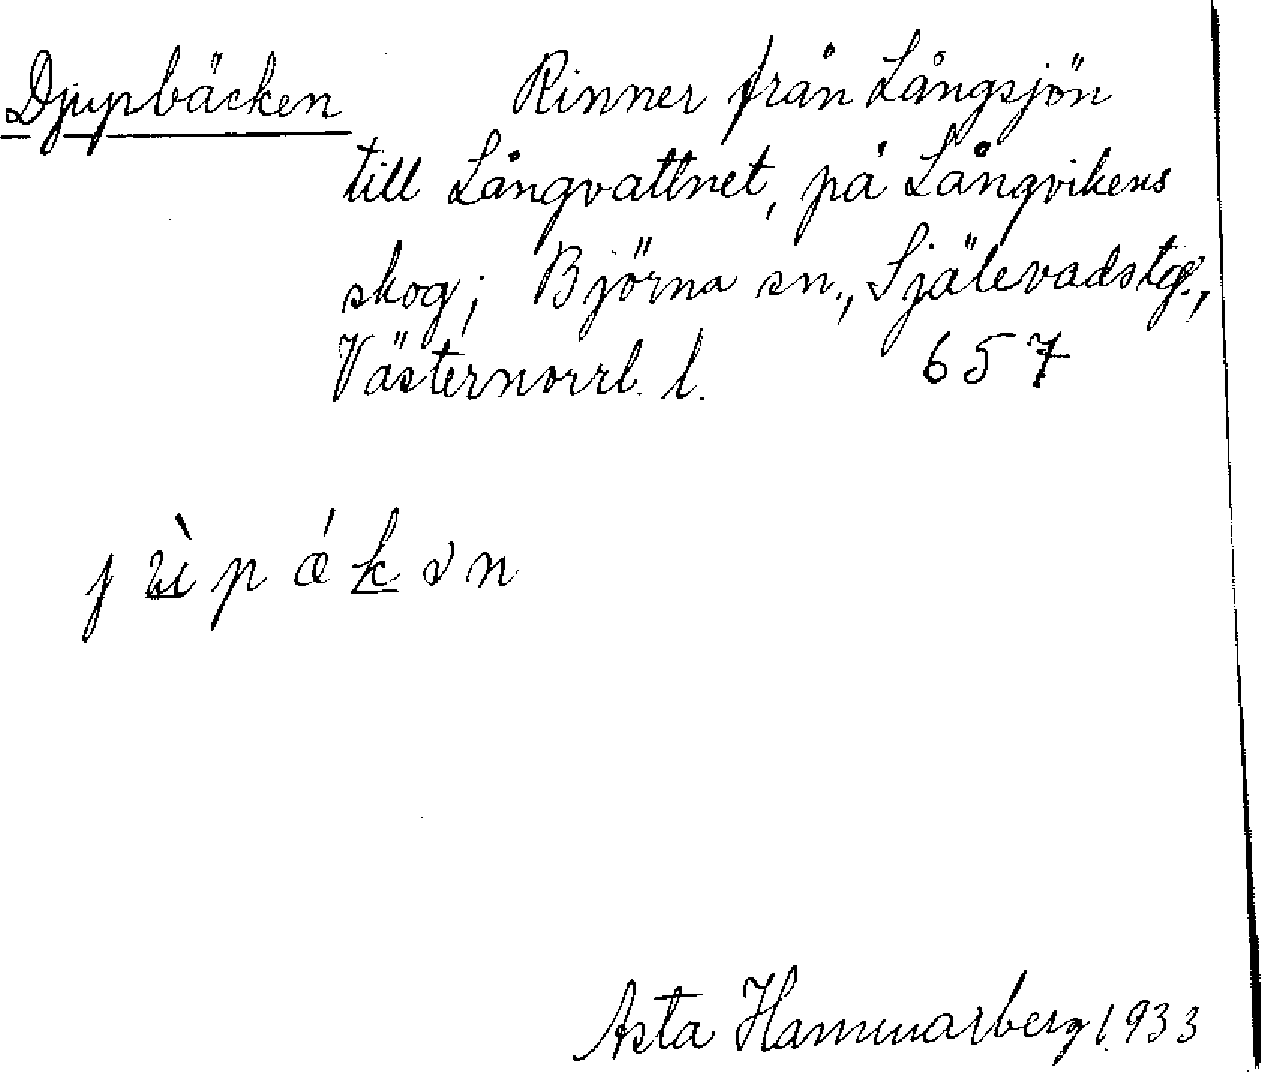 Djupbäcken Rinner från Långsjön
till Långvattnet, på Långvikens
skog; Björna sn., Själevadstg.,
Västernorrl. l. 657
Asta Hammarberg 1933